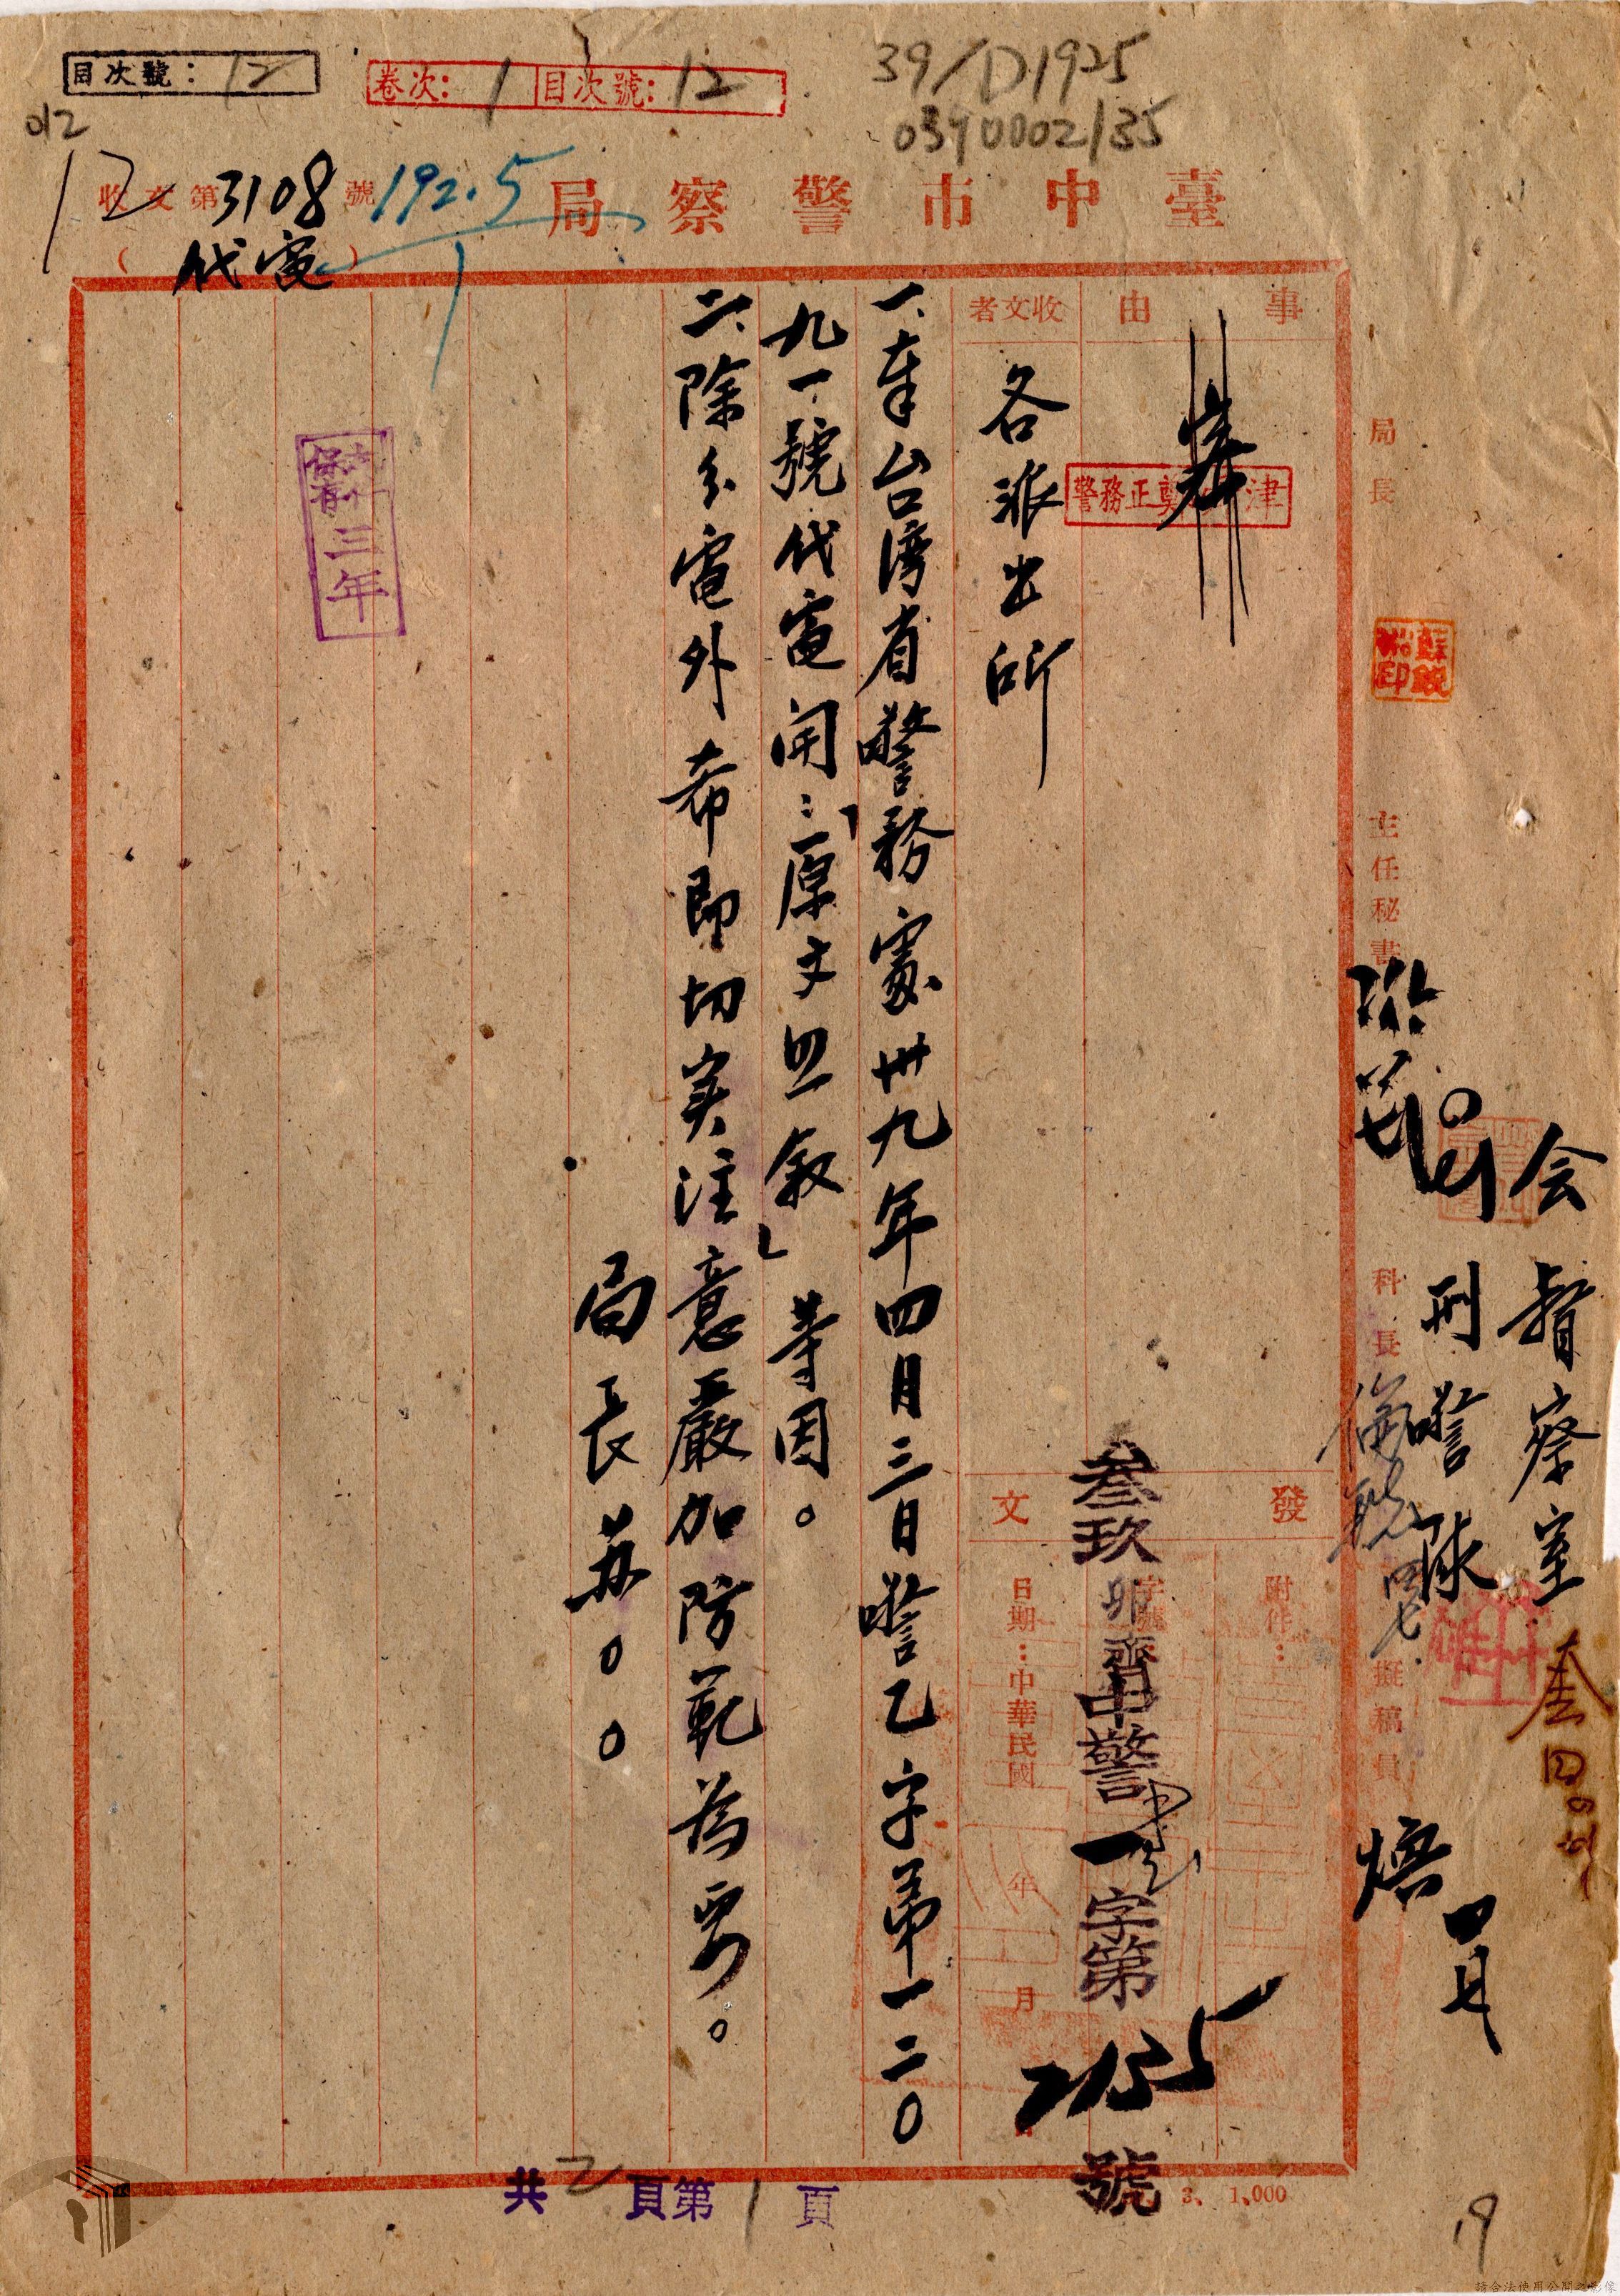 目次號：12
卷次：1 目次號：12
39/D1925
0390002/35
012
12
收文第3108號
192.5
1
臺中市警察局
（代電）
事由
收文者
各派出所
一、奉台灣省警務處卅九年四月三日警乙字第一二〇
九一號代電開：「原文照敘」等因。
二、除分電外希即切实注意嚴加防範為要。
局長苏〇〇
保存三年
局長
主任秘書
科長
擬稿員
会督察室
刑警隊
發文
附件：
字號
日期：中華民國 年 月
叁玖卯齊中警一字第2135號
焙
3、1,000
共2頁第1頁
19
請合法使用公開之影像